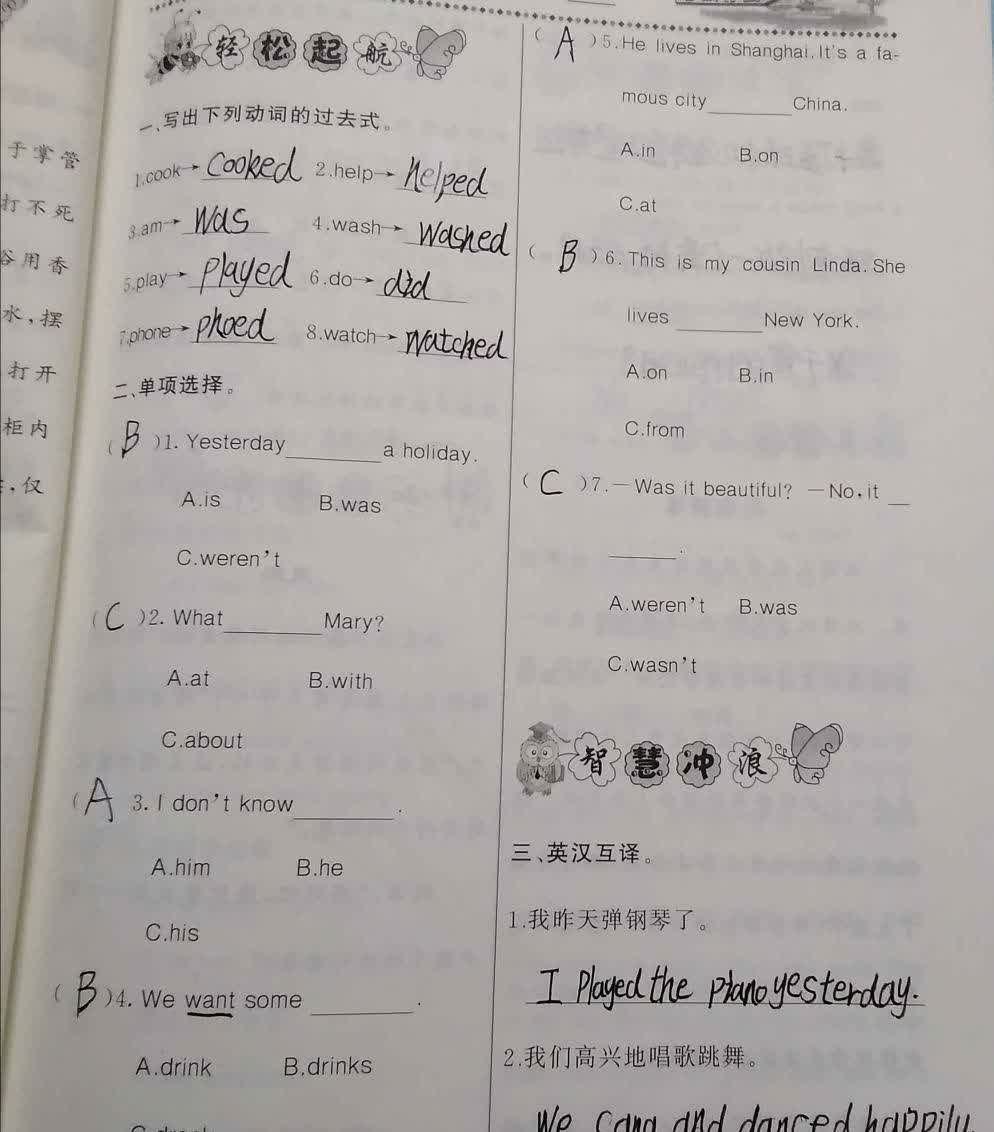 于掌管
打不死
谷用香
水，摆
打开
柜内
，仅
轻松起航
一、写出下列动词的过去式。
1.cook→ cooked 2.help→ helped
3.am→ was 4.wash→ washed
5.play→ played 6.do→ did
7.phone→ phoed 8.watch→ watched
二、单项选择。
( B )1. Yesterday ______ a holiday.
A.is B.was
C.weren't
( C )2. What ______ Mary?
A.at B.with
C.about
( A 3. I don't know ______.
A.him B.he
C.his
( B )4. We want some ______.
A.drink B.drinks
( A )5.He lives in Shanghai.It's a fa-
mous city ______ China.
A.in B.on
C.at
( B )6.This is my cousin Linda.She
lives ______ New York.
A.on B.in
C.from
( C )7.—Was it beautiful? —No,it __
______.
A.weren't B.was
C.wasn't
智慧冲浪
三、英汉互译。
1.我昨天弹钢琴了。
I Played the piano yesterday.
2.我们高兴地唱歌跳舞。
We and danced happily